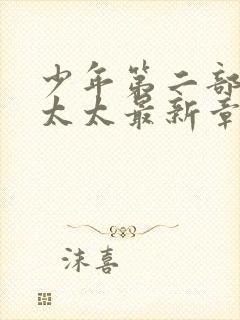 少年第二部
太太最新章
沫喜